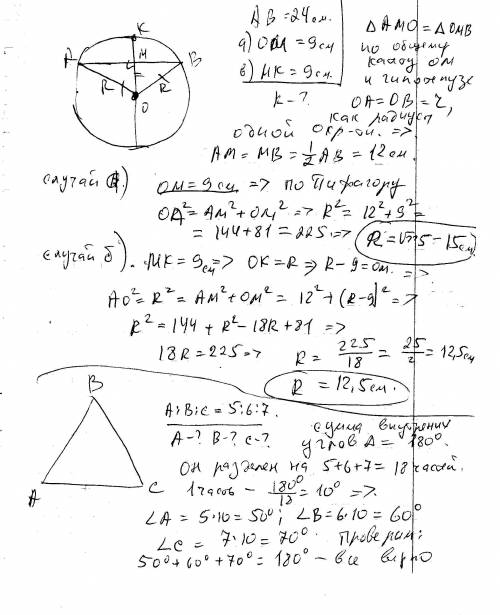 K
A M B
R R
O
AB = 24 см.
а) OM = 9 см
в) MK = 9 см.
R - ?
Δ AMO = Δ OMB
по общему
катету OM
и гипотенузе
OA = OB = r,
как радиусы
одной окр-ти. =>
AM = MB = 1/2 AB = 12 см.
случай а.) OM = 9 см => по Пифагору
OA² = AM² + OM² => R² = 12² + 9² =
= 144 + 81 = 225 => R = √225 - 15 см
случай б). MK = 9 см => OK = R => R - 9 = OM. =>
AO² = R² = AM² + OM² = 12² + (R-9)² =>
R² = 144 + R² - 18R + 81 =>
18R = 225 => R = 225/18 = 25/2 = 12,5 см
R = 12,5 см.
B
A C
A:B:C = 5:6:7.
A-? B-? C-?
сумма внутренних
углов Δ = 180°.
Он разделен на 5+6+7 = 18 частей.
1 часть - 180°/18 = 10° =>
∠A = 5·10 = 50°; ∠B = 6·10 = 60°
∠C = 7·10 = 70° Проверим:
50° + 60° + 70° = 180° - все верно